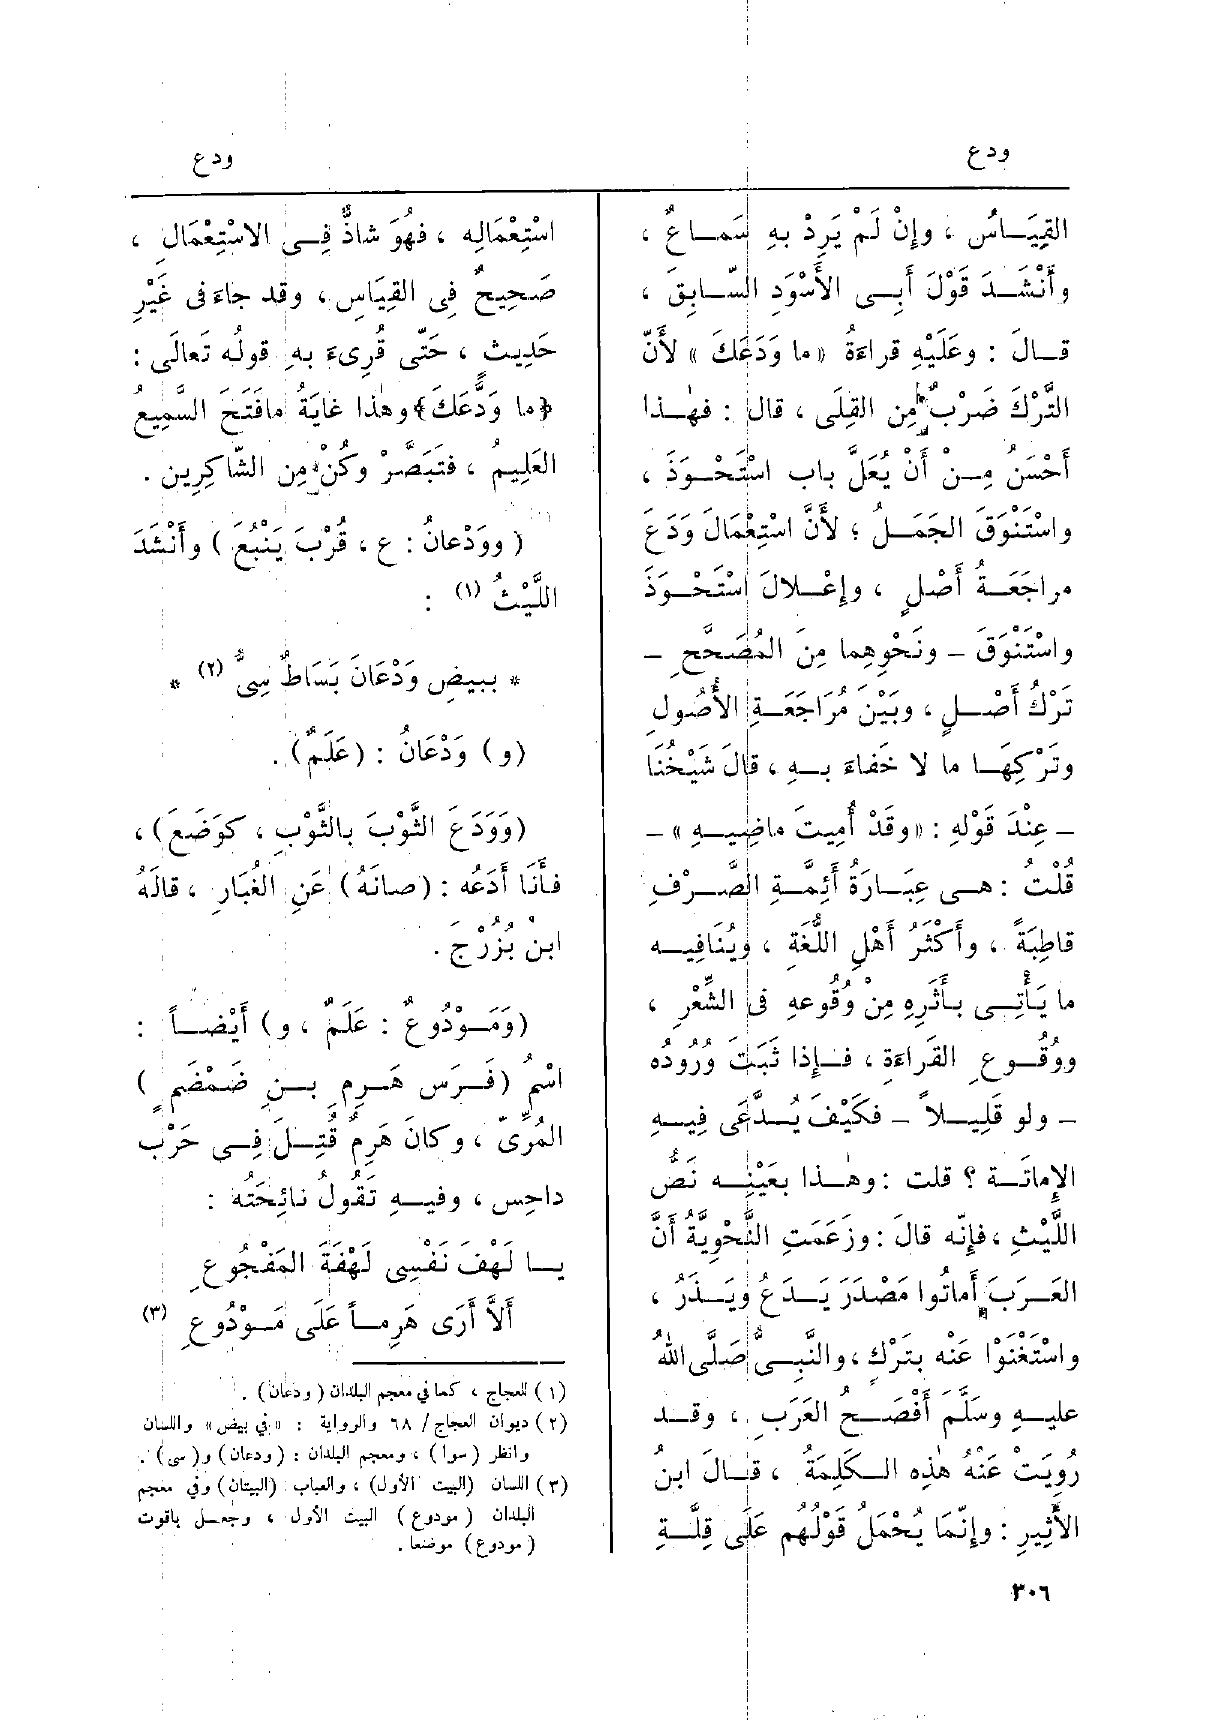 ودع
ودع
القِيَاسُ ، وإنْ لَمْ يَرِدْ بهِ سَمَاعٌ ،
وأَنْشَدَ قَوْلَ أَبِى الأَسْوَدِ السّابِقَ ،
قالَ : وعَلَيْهِ قراءَةُ «ما وَدَعَكَ» لأَنّ
التَّرْكَ ضَرْبٌ مِن القِلَى ، قال : فهٰذا
أَحْسَنُ مِنْ أَنْ يُعَلَّ باب اسْتَحْوَذَ ،
واسْتَنْوَقَ الجَمَلُ ؛ لأَنَّ اسْتِعْمَالَ وَدَعَ
مراجَعَةُ أَصْلٍ ، وإعْلالَ اسْتَحْوَذَ
واسْتَنْوَقَ - ونَحْوِهِما مِنَ المُصَحَّحِ -
تَرْكُ أَصْلٍ ، وبَيْنَ مُرَاجَعَةِ الأُصُولِ
وتَرْكِهَا ما لا خَفاءَ بِهِ ، قالَ شَيْخُنَا
- عِنْدَ قَوْلِهِ : «وقَدْ أُمِيتَ ماضِيهِ» -
قُلْتُ : هى عِبَارَةُ أَئِمَّةِ الصَّرْفِ
قاطِبَةً ، وأَكْثَرُ أَهْلِ اللُّغَةِ ، ويُنَافِيه
ما يَأْتِى بأَثَرِهِ مِنْ وُقُوعِهِ فى الشِّعْرِ ،
ووُقُوعِ القراءَةِ ، فإِذا ثَبَتَ وُرُودُه
- ولو قَلِيلاً - فكَيْفَ يُدَّعَى فِيهِ
الإِماتَةِ ؟ قلت : وهٰذا بعَيْنِهِ نَصُّ
اللَّيْثِ ، فإِنّه قالَ : وزَعَمَتِ النَّحْوِيَّةُ أَنَّ
العَرَبَ أَماتُوا مَصْدَرَ يَدَعُ ويَذَرُ ،
واسْتَغْنَوْا عَنْه بتَرْكٍ ، والنَّبِىُّ صَلَّى اللهُ
عليهِ وسَلَّم أَفْصَحُ العَرَبِ ، وقد
رُوِيَتْ عَنْهُ هٰذِه الكَلِمَةُ ، قالَ ابن
الأَثِيرِ : وإِنَّمَا يُحْمَلُ قَوْلُهم عَلَى قِلَّةِ
اسْتِعْمَالِه ، فهُوَ شاذٌّ فِى الاسْتِعْمَالِ ،
صَحِيحٌ فِى القِيَاسِ ، وقد جاءَ فى غَيْرِ
حَدِيثٍ ، حَتّى قُرِىءَ بهِ قولُه تَعالَى :
﴿ما وَدَّعَكَ﴾ وهٰذا غايَةُ مافَتَحَ السَّمِيعُ
العَلِيمُ ، فتَبَصَّرْ وكُنْ مِن الشّاكِرِين .
( ووَدْعانُ : ع ، قُرْبَ يَنْبُعَ ) وأَنْشَدَ
اللَّيْثُ (١) :
* ببيضِ وَدْعَانَ بَسَاطٌ سِىُّ (٢) *
(و) وَدْعَانُ : (عَلَمٌ) .
(وَوَدَعَ الثَّوْبَ بالثَّوْبِ ، كوَضَعَ) ،
فأَنَا أَدَعُه : (صانَهُ) عَنِ الغُبَارِ ، قالَهُ
ابن بُزُرْجَ .
(وَمَوْدُوعٌ : عَلَمٌ ، و) أَيْضاً :
اسْمُ (فَرَسِ هَرِمِ بنِ ضَمْضَمٍ )
المُرِّىّ ، وكانَ هَرِمٌ قُتِلَ فِى حَرْبِ
داحِس ، وفيهِ تَقُولُ نائِحَتُه :
يا لَهْفَ نَفْسِى لَهْفَةَ المَفْجُوعِ
أَلاَّ أَرَى هَرِماً عَلَى مَوْدُوعِ (٣)
(١) للعجاج ، كما في معجم البلدان (ودعان) .
(٢) ديوان العجاج / ٦٨ والرواية : «في بيض» واللسان
وانظر (سوا) ، ومعجم البلدان : (ودعان) و(سى) .
(٣) اللسان (البيت الأول) ، والعباب (البيتان) وفي معجم
البلدان (مودوع) البيت الأول ، وجعل ياقوت
(مودوع) موضعا .
٣٠٦